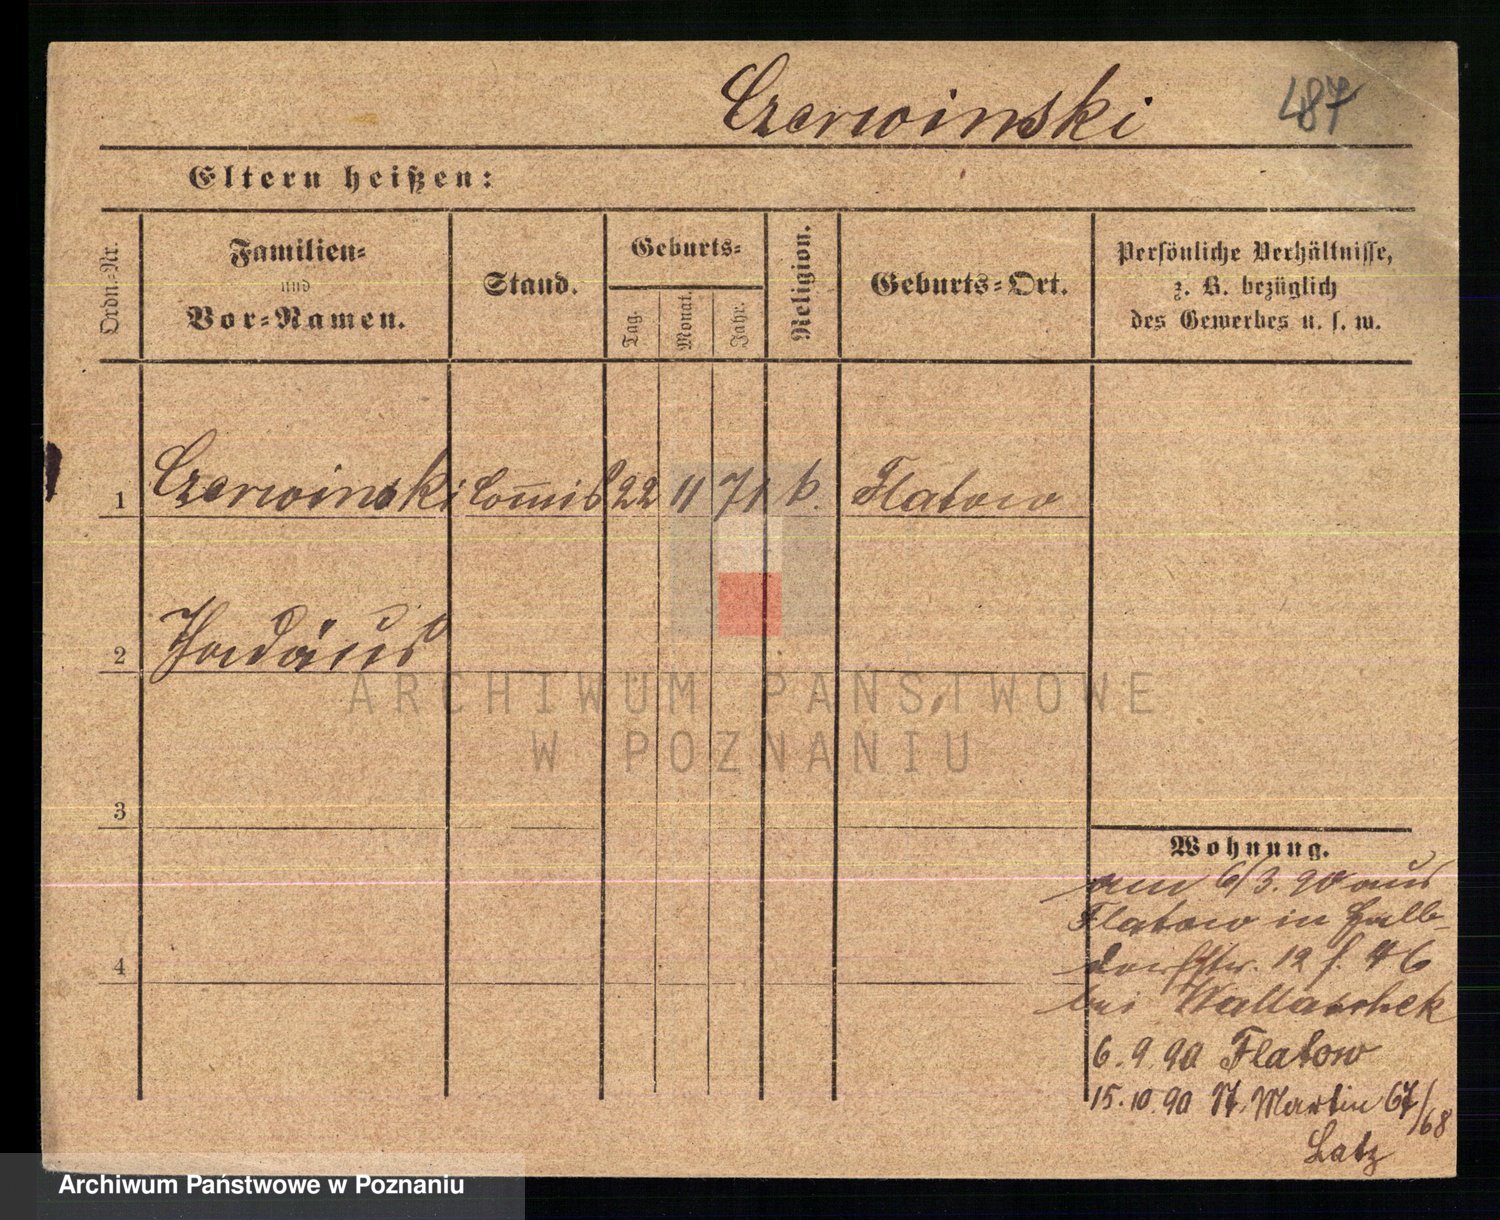 Czerwinski 487
Eltern heißen:
Ordn.-Nr.
Familien-
und
Vor-Namen.
Stand.
Geburts-
Tag.
Monat.
Jahr.
Religion.
Geburts-Ort.
Persönliche Verhältnisse,
z. B. bezüglich
des Gewerbes u. s. w.
1 Czerwinski Com̄is 22 11 71 k. Flatow
2 Thadäus
3
4
Wohnung.
am 6/3. 90 aus
Flatow in Halb-
dorfstr. 12 f. 46
bei Wallaschek
6. 9. 90 Flatow
15. 10. 90 St. Martin 67/68
Latz
ARCHIWUM PAŃSTWOWE
W POZNANIU
Archiwum Państwowe w Poznaniu